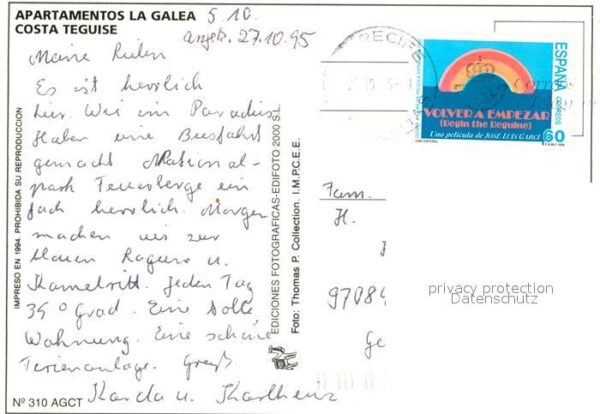 APARTAMENTOS LA GALEA
COSTA TEGUISE
5 10.
27.10.95
Es ist herrlich
hier. Wie im Paradies
Haben eine Busfahrt
gemacht National-
park Feuerberge ein
fach herrlich. Morgen
machen wir zur
blauen u.
Kamelritt. Jeden Tag
35° Grad. Eine tolle
Wohnung. Eine schöne
Ferienanlage. Gruß
u. Karlheinz
Nº 310 AGCT
IMPRESO EN 1994 PROHIBIDA SU REPRODUCCION
EDICIONES FOTOGRAFICAS-EDIFOTO 2000 S.L.
Foto: Thomas P. Collection. I.M.P.C.E.E.
ARRECIFE
ESPAÑA
CORREOS
VOLVER A EMPEZAR
(Begin the Beguine)
Una película de JOSE LUIS GARCI
60
Fam.
H.
97084
Ge
privacy protection
Datenschutz